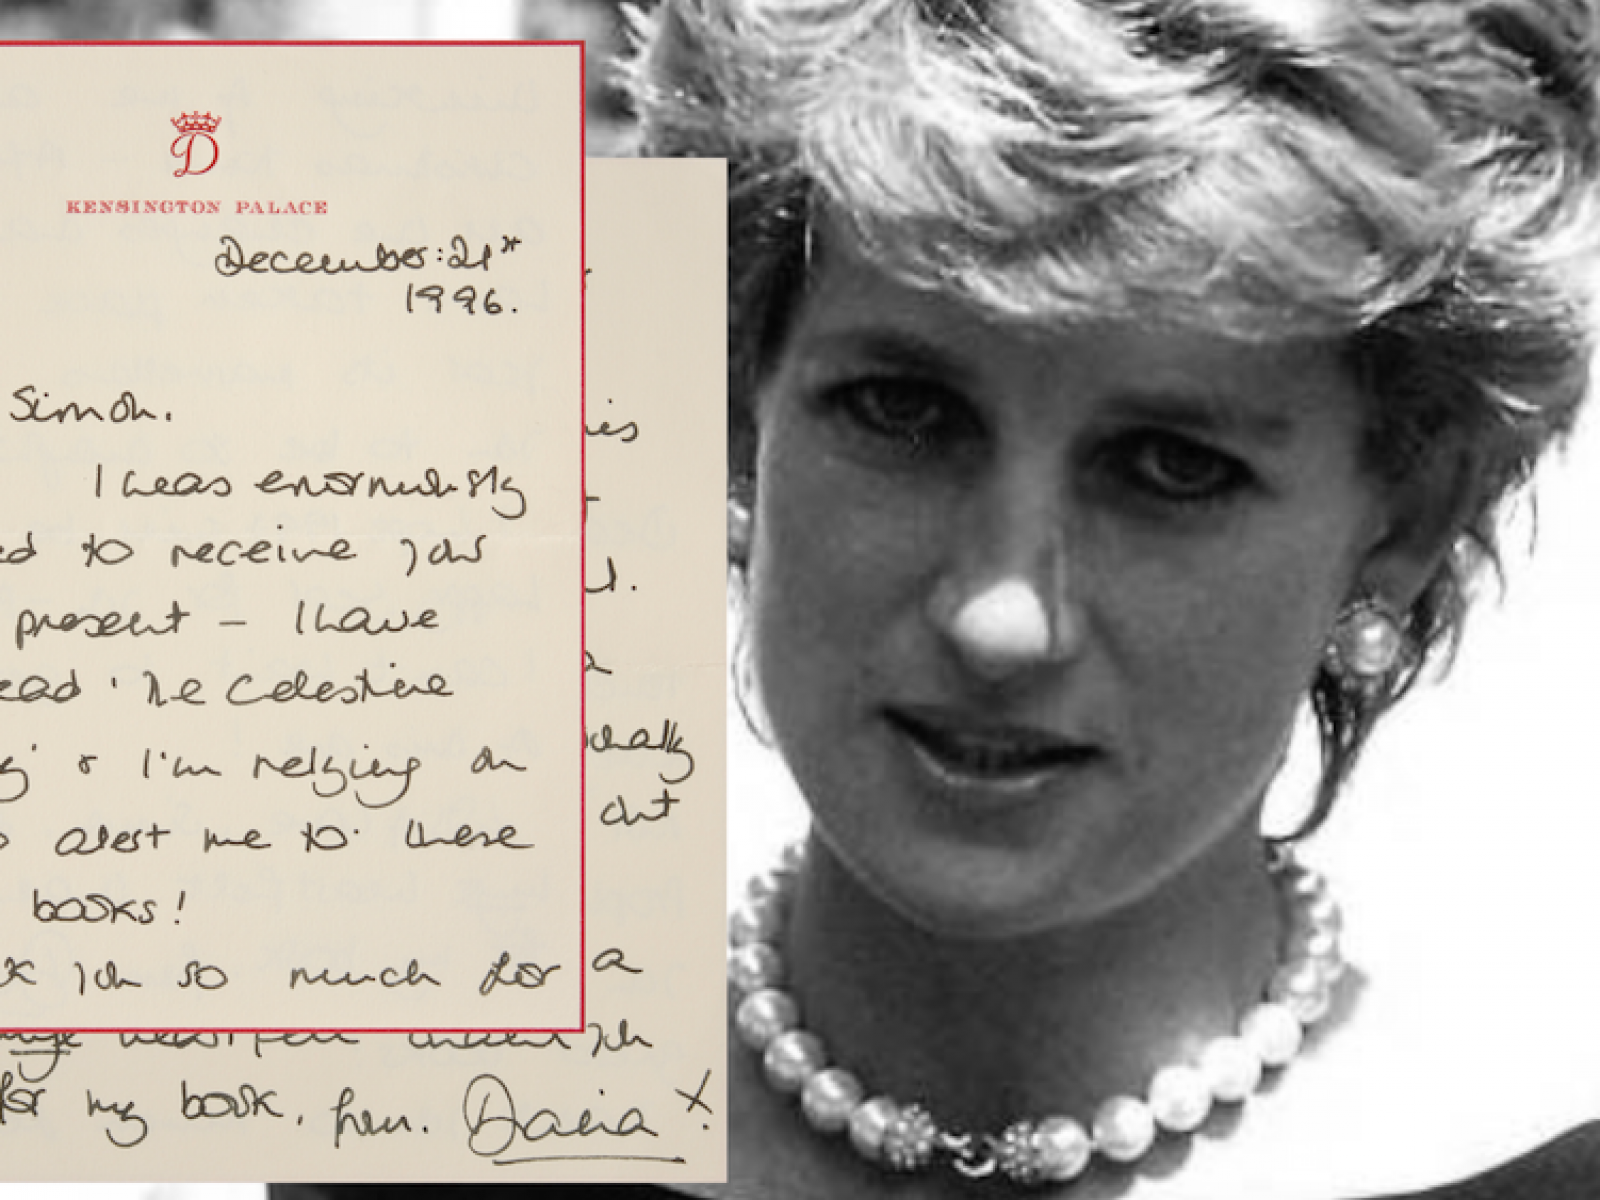 D
KENSINGTON PALACE
December: 21st
1996.
Simon.
I was enormously
ed to receive your
present - I have
ead 'The Celestine
y' & I'm relying on
o alert me to these
books!
k you so much for
ies
l.
onally
out
a
you
for my book, from. Diana x